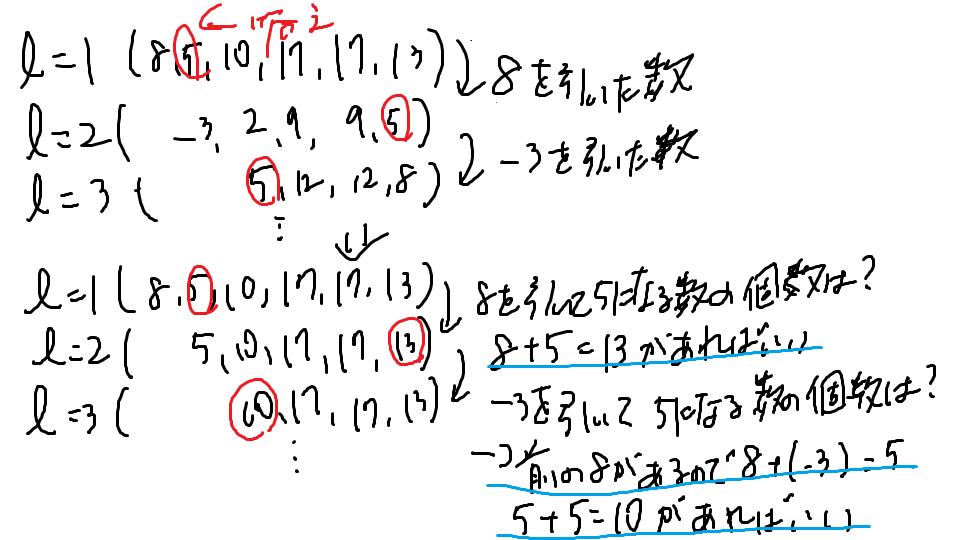 ← コレ
l=1 (8,5,10,17,17,13)
8を引いた数
l=2( -3, 2,9, 9,5)
-3を引いた数
l=3 ( 5,12,12,8)
⋮
l=1(8,5,10,17,17,13)
8を引いて5になる数の個数は?
l=2( 5,10,17,17,13)
8+5=13があればいい
l=3( 10,17,17,13)
-3を引いて5になる数の個数は?
⋮
→前の8があるので8+(-3)=5
5+5=10があればいい